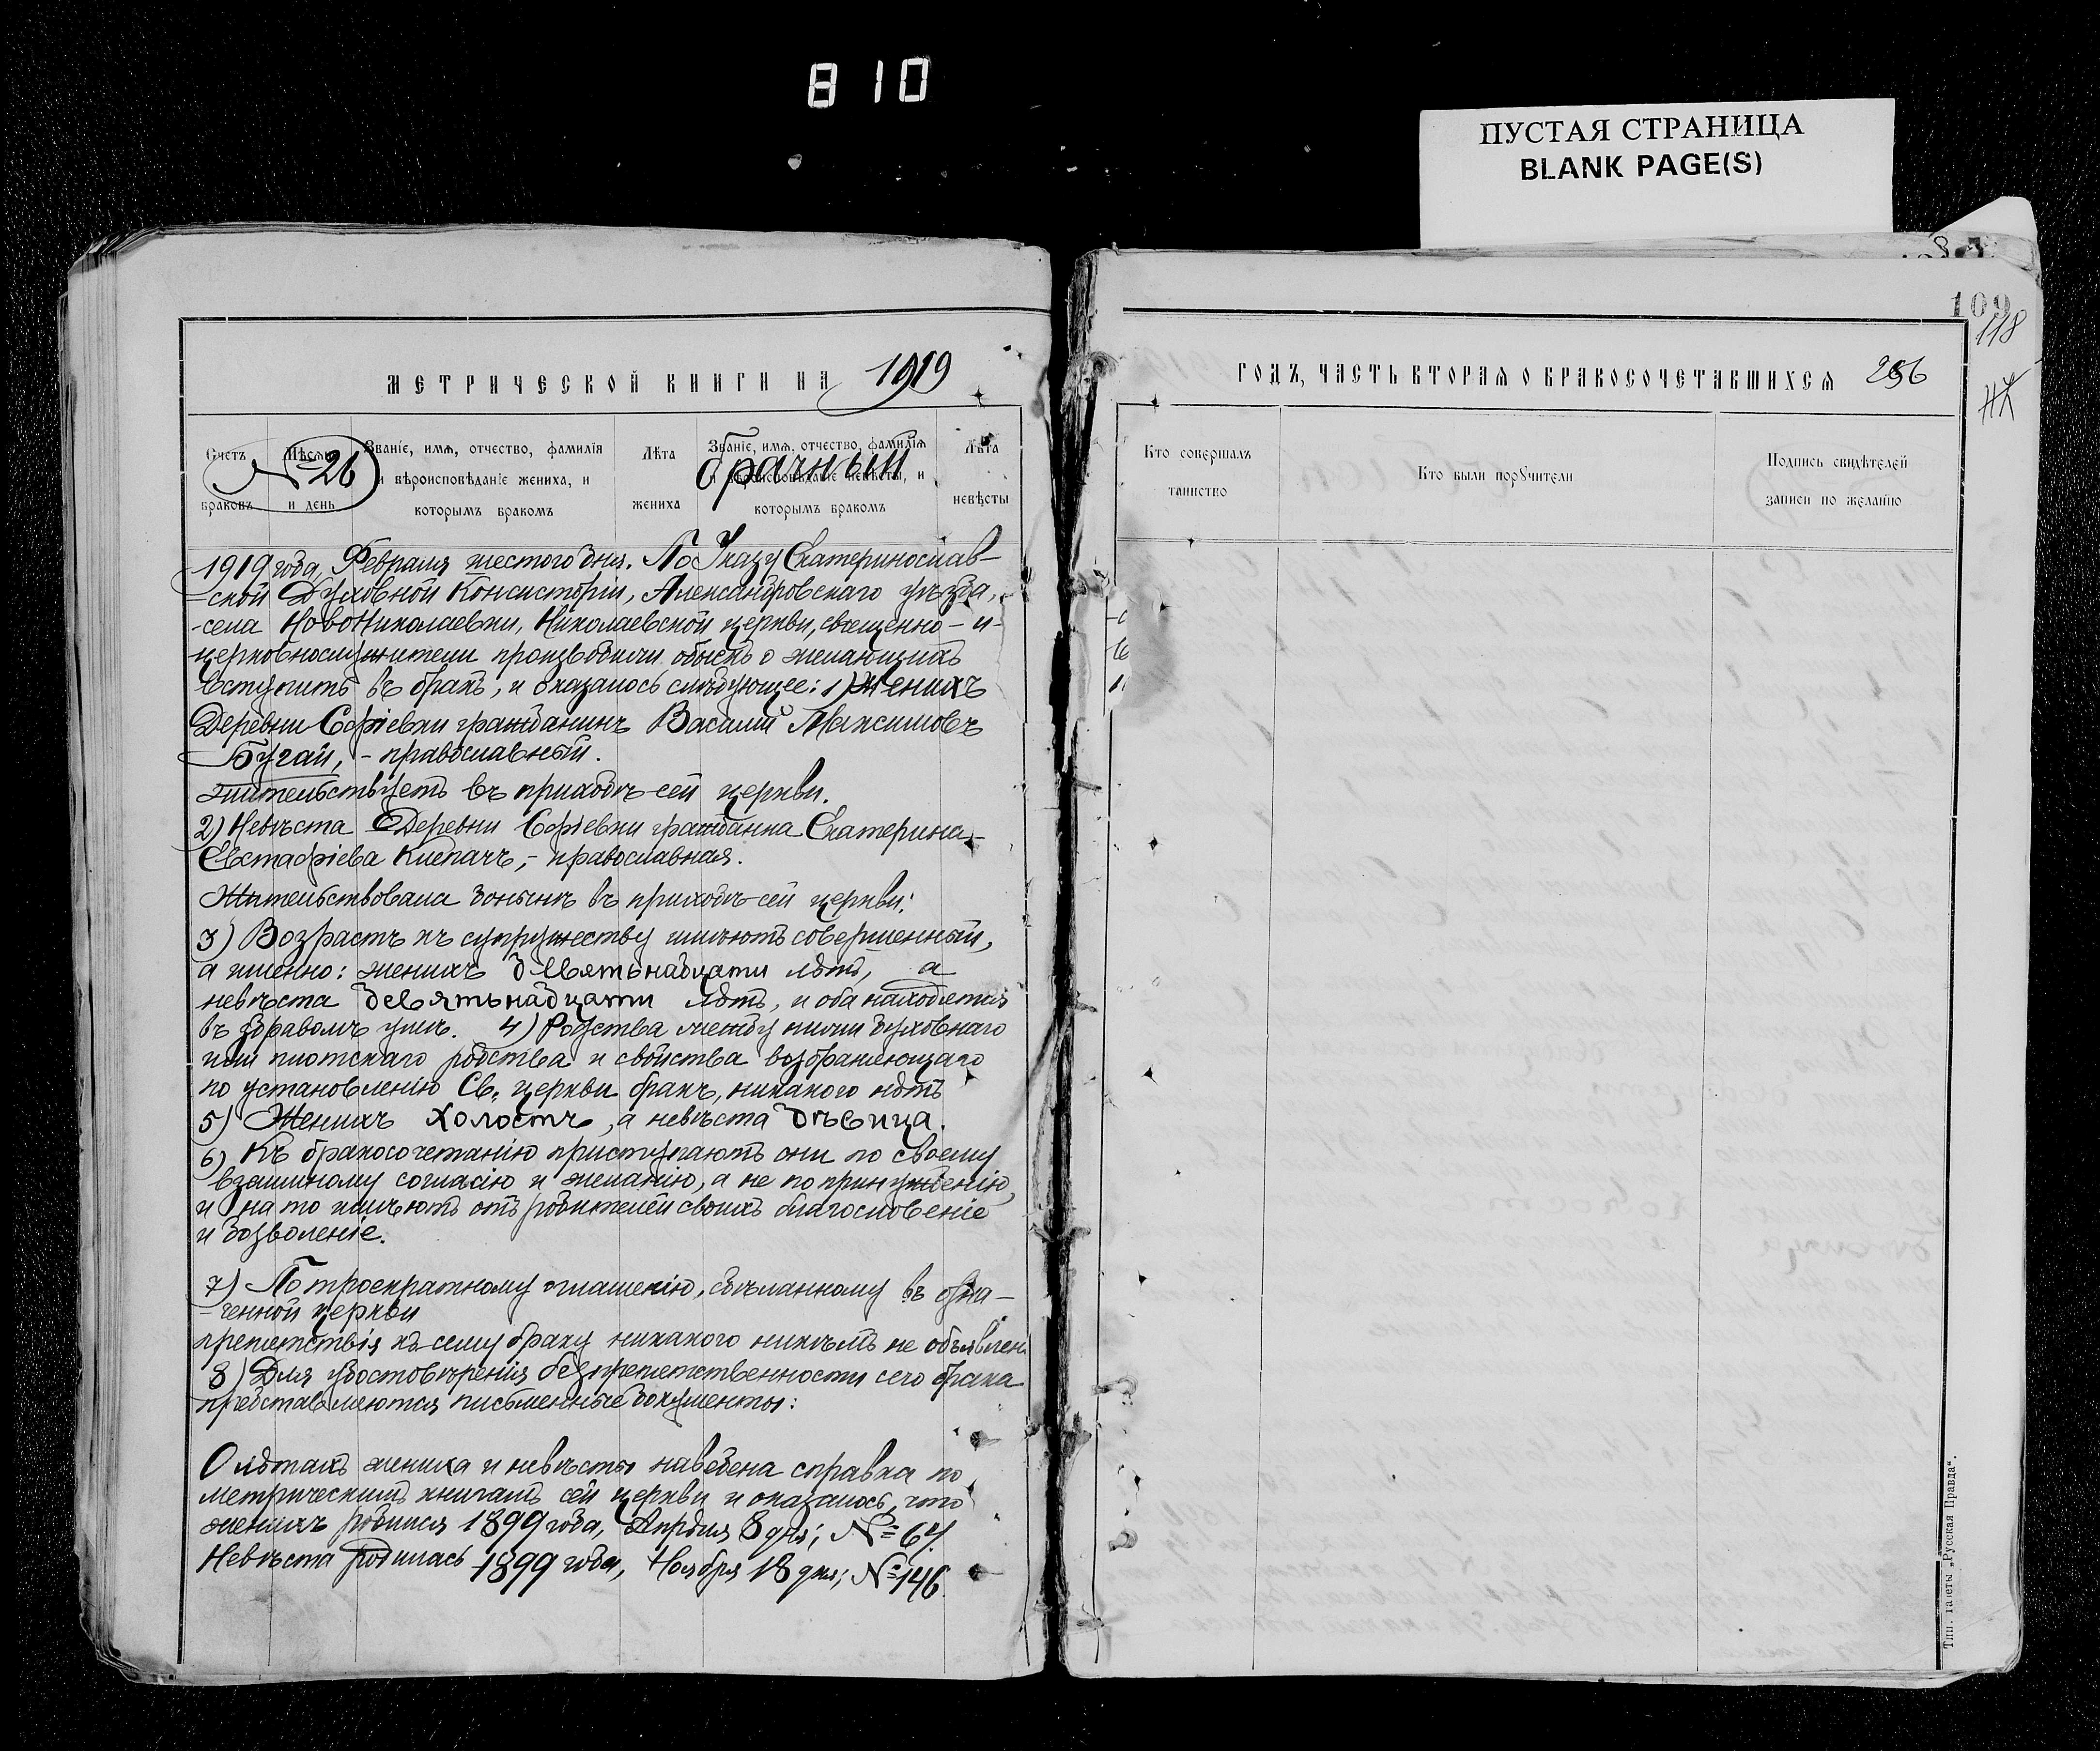 810
ПУСТАЯ СТРАНИЦА
BLANK PAGE(S)
109
118
МЕТРИЧЕСКОЙ КНИГИ НА 1919
Счетъ браковъ
Мѣсяцъ и день
Званіе, имя, отчество, фамилія и вѣроисповѣданіе жениха, и которымъ бракомъ
Лѣта жениха
Званіе, имя, отчество, фамилія и вѣроисповѣданіе невѣсты, и которымъ бракомъ
Лѣта невѣсты
№ 26
брачный
1919 года, Февраля шестого дня. По Указу Екатеринослав-
-ской Духовной Консисторіи, Александровскаго уѣзда,
-села НовоНиколаевки, Николаевской церкви, священно - и-
церковнослужители производили обыскъ о желающихъ
вступить въ бракъ, и оказалось слѣдующее: 1) Женихъ
Деревни Софіевки гражданинъ Василій Максимовъ
Бугай, - православный.
жительствуетъ въ приходѣ сей церкви.
2) Невѣста Деревни Софіевки гражданка Екатерина
Евстафіева Клепачъ, - православная.
Жительствовала донынѣ въ приходѣ сей церкви.
3) Возрастъ къ супружеству имѣютъ совершенный,
а именно: женихъ девятьнадцати лѣтъ, а
невѣста девятьнадцати лѣтъ, и оба находятся
въ здравомъ умѣ. 4) Родства между ними духовнаго
или плотскаго родства и свойства возбраняющаго
по установленію Св. церкви бракъ, никакого нѣтъ
5) Женихъ холостъ, а невѣста дѣвица.
6) Къ бракосочетанію приступаютъ они по своему
взаимному согласію и желанію, а не по принужденію,
и на то имѣютъ отъ родителей своихъ благословеніе
и дозволеніе.
7) По троекратному оглашенію, сдѣланному въ озна-
-ченной церкви
препятствія къ сему браку никакого никѣмъ не объявлен
8) Для удостовѣренія безпрепятственности сего брака
представляются письменные документы:
О лѣтахъ жениха и невѣсты наведена справка по
метрическимъ книгамъ сей церкви и оказалось, что
женихъ родился 1899 года, Апрѣля 8 дня; № 64.
Невѣста родилась 1899 года, Ноября 18 дня; № 146.
ГОДЪ, ЧАСТЬ ВТОРАЯ О БРАКОСОЧЕТАВШИХСЯ
Кто совершалъ таинство
Кто были поручители
Подпись свидѣтелей записи по желанію
Тип. газеты „Русская Правда“.